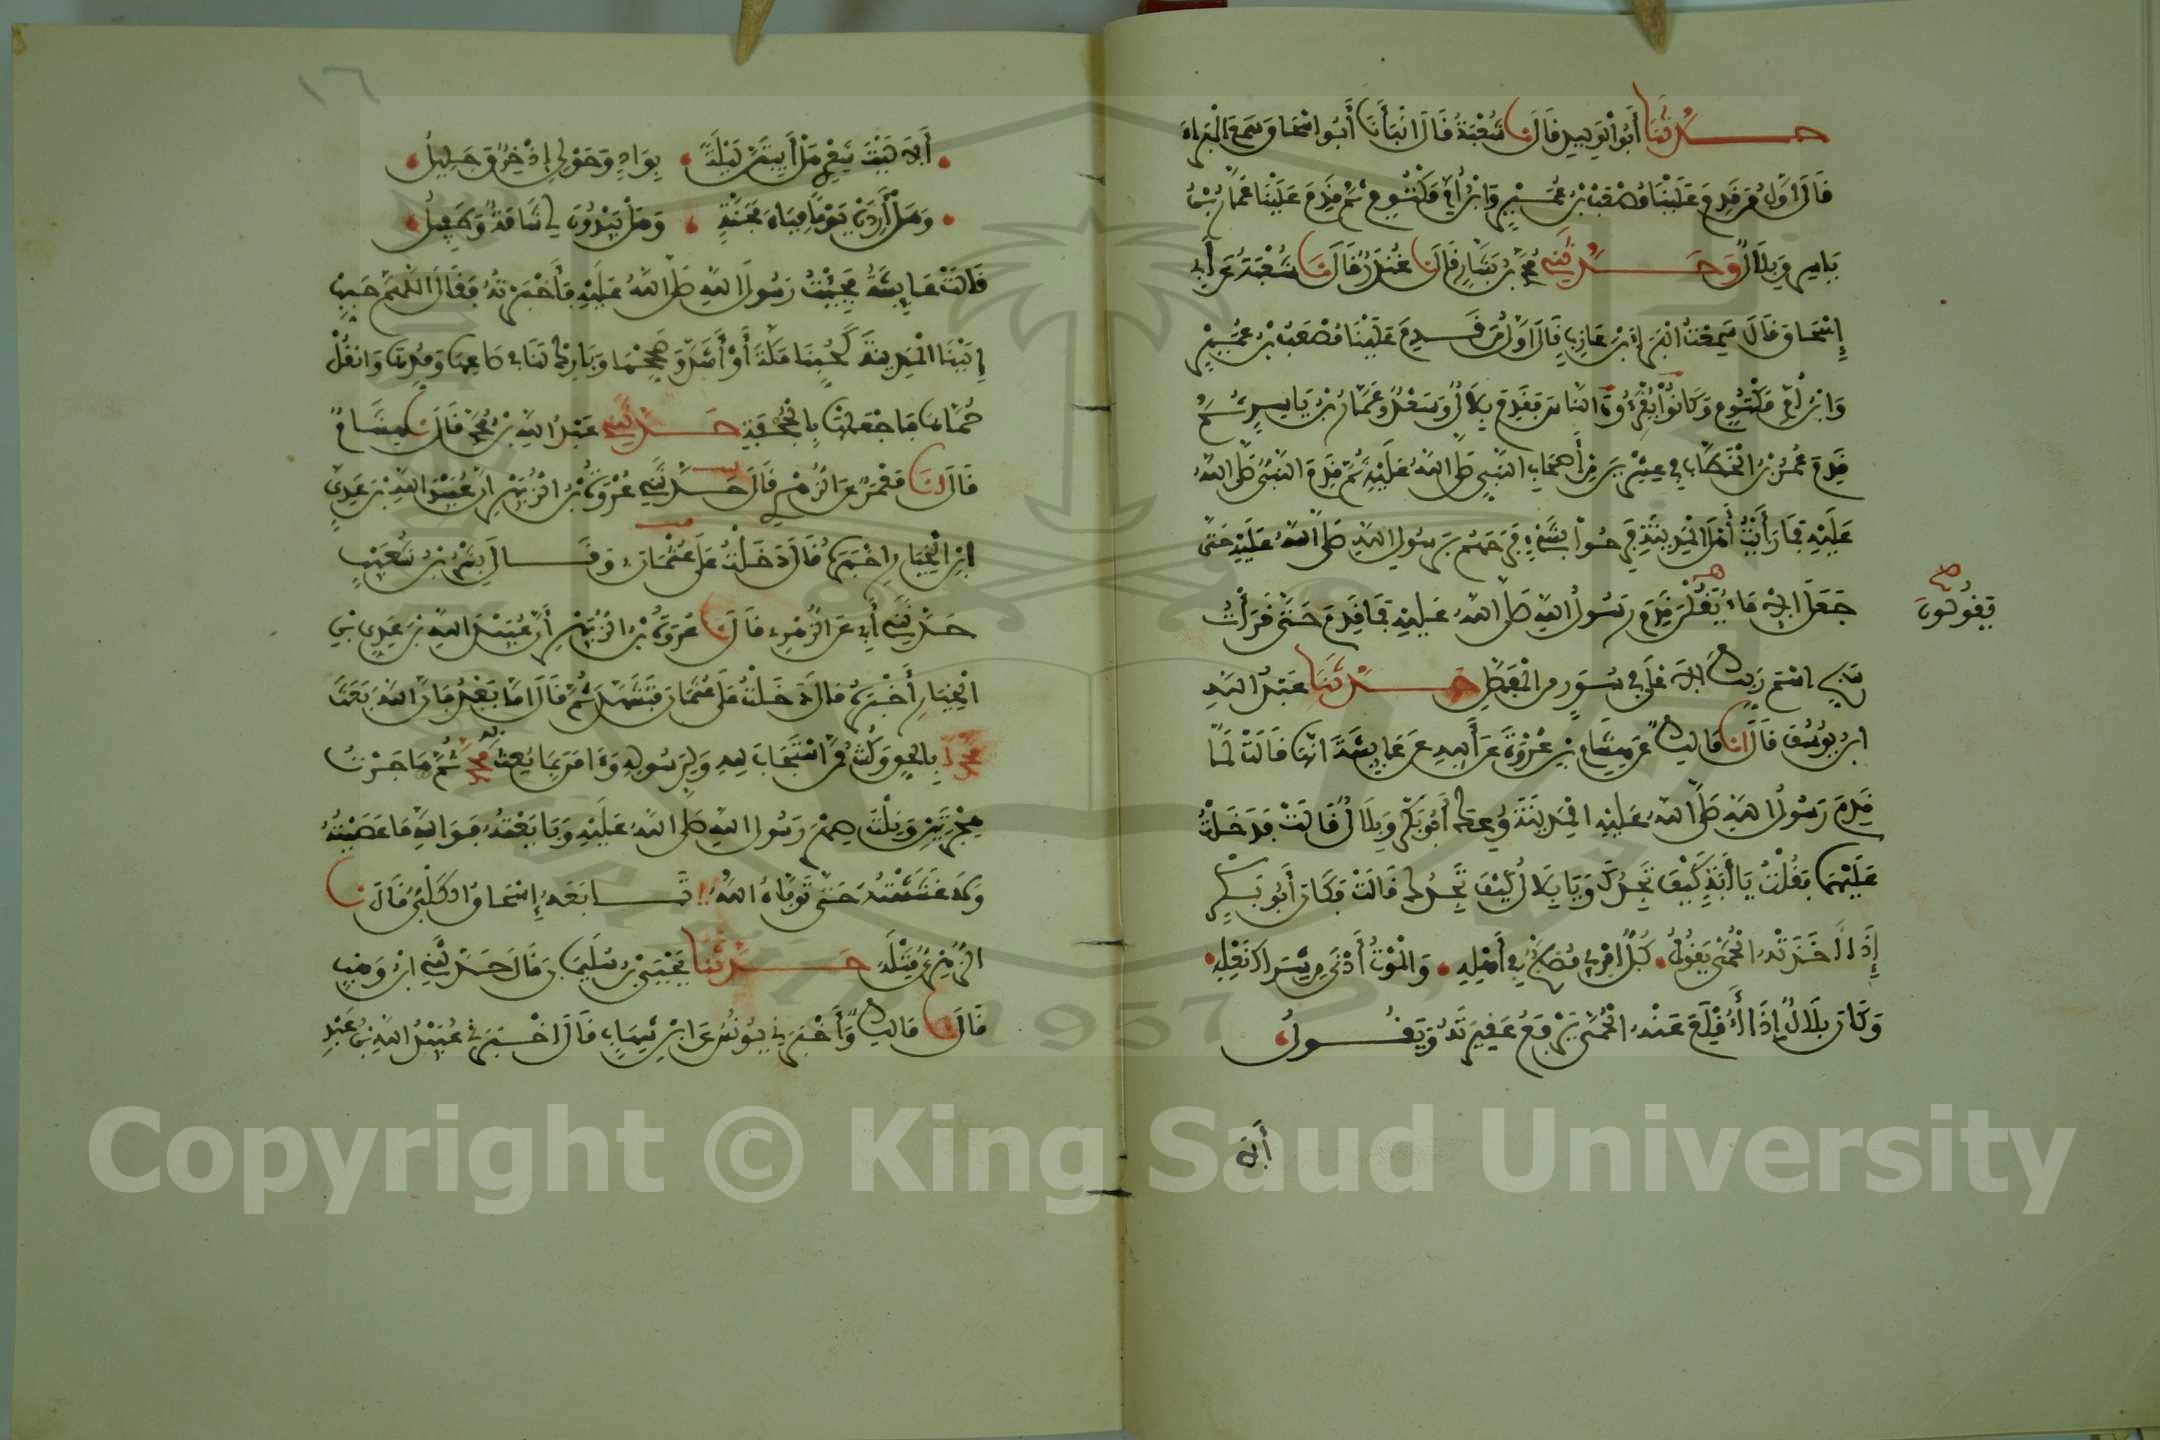 حدثنا أبو الوليد قال نا شعبة قال انبأنا أبو إسحاق سمع البراء
قال أول من قدم علينا مصعب بن عمير وابن أم مكتوم ثم قدم علينا عمار بن
ياسر وبلال وحدثني محمد بن بشار قال نا غندر قال نا شعبة عن أبي
إسحاق قال سمعت البراء بن عازب قال أول من قدم علينا مصعب بن عمير
وابن أم مكتوم وكانوا يقرءون الناس فقدم بلال وسعد وعمار بن ياسر ثم
قدم عمر بن الخطاب في عشرين من أصحاب النبي صلى الله عليه ثم قدم النبي صلى الله
عليه فما رأيت أهل المدينة فرحوا بشيء فرحهم برسول الله صلى الله عليه حتى
جعل الإماء يقلن قدم رسول الله صلى الله عليه فما قدم حتى قرأت
يقولون
سبح اسم ربك الأعلى في سور من المفصل حدثنا عبد الله
ابن يوسف قال انا مالك عن هشام بن عروة عن أبيه عن عايشة انها قالت لما
قدم رسول الله صلى الله عليه المدينة وعك أبو بكر وبلال قالت فدخلت
عليهما فقلت يا أبة كيف تجدك ويا بلال كيف تجدك قالت فكان أبو بكر
إذا اخذته الحمى يقول كل امرئ مصبح في أهله والموت أدنى من شراك نعله
وكان بلال إذا أقلع عنه الحمى يرفع عقيرته ويقول
ألا
١٦
ألا ليت شعري هل أبيتن ليلة بواد وحولي إذخر وجليل
وهل أردن يوما مياه مجنة وهل يبدون لي شامة وطفيل
قالت عايشة فجئت رسول الله صلى الله عليه فأخبرته فقال اللهم حبب
إلينا المدينة كحبنا مكة أو أشد وصححها وبارك لنا في صاعها ومدها وانقل
حماها فاجعلها بالجحفة حدثني عبد الله بن محمد قال نا هشام
قال انا معمر عن الزهري قال حدثني عروة بن الزبير ان عبيد الله بن عدي
ابن الخيار اخبره قال دخلت على عثمان وقال بشر بن شعيب
حدثني أبي عن الزهري قال نا عروة بن الزبير أن عبيد الله بن عدي بن
الخيار أخبره قال دخلت على عثمان فتشهد ثم قال اما بعد فإن الله بعث
محمدا بالحق وكنت ممن استجاب لله ولرسوله وآمن بما بعث به محمد ثم هاجرت
هجرتين ونلت صهر رسول الله صلى الله عليه وبايعته فوالله ما عصيته
ولا غششته حتى توفاه الله تابعه إسحاق الكلبي قال نا
الزهري مثله حدثنا يحيى بن سليمان قال حدثني ابن وهب
قال نا مالك وأخبرني يونس عن ابن شهاب قال اخبرني عبيد الله بن عبد
Copyright © King Saud University
1957